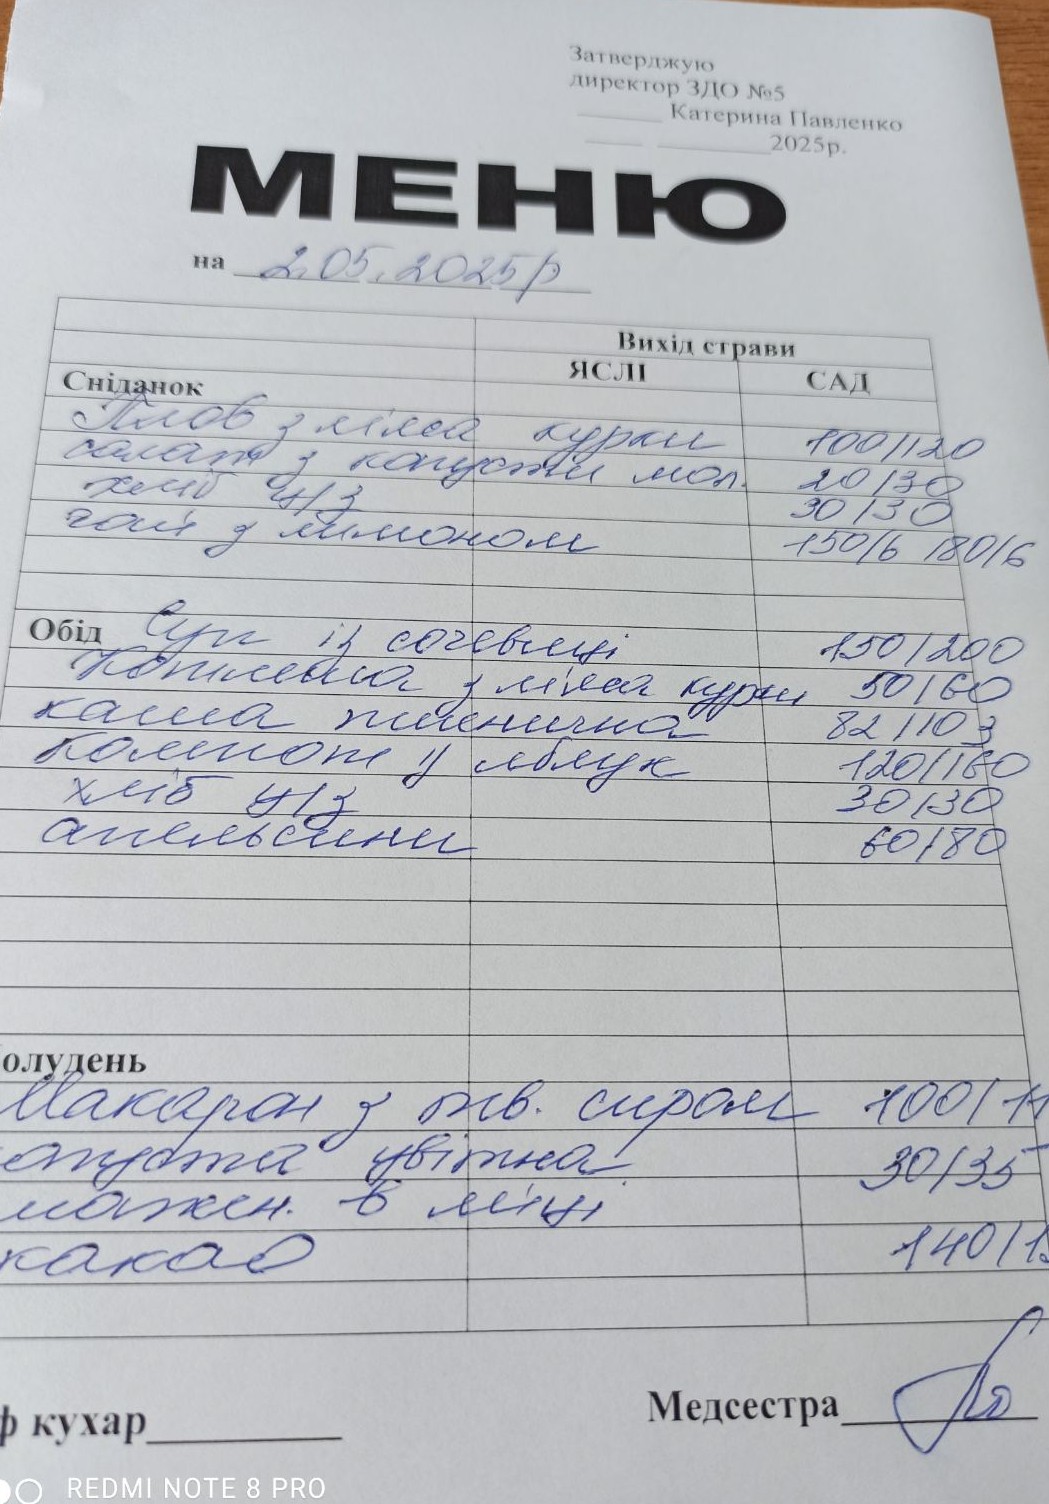 Затверджую
директор ЗДО №5
______ Катерина Павленко
____ ________2025р.
МЕНЮ
на 2.05.2025р
Вихід страви
ЯСЛІ САД
Сніданок
Плов з м'яса курки 100/120
салат з капусти мол. 20/30
хліб ц/з 30/30
чай з лимоном 150/6 180/6
Обід Суп із сочевиці 150/200
Котлета з м'яса курки 50/60
каша пшенична 82/103
Компот з яблук 120/160
хліб ц/з 30/30
апельсини 60/80
олудень
Макарон з тв. сиром 100/11
апуста цвітна 30/35
мажен. в яйці
какао 140/15
ф кухар______ Медсестра______
REDMI NOTE 8 PRO